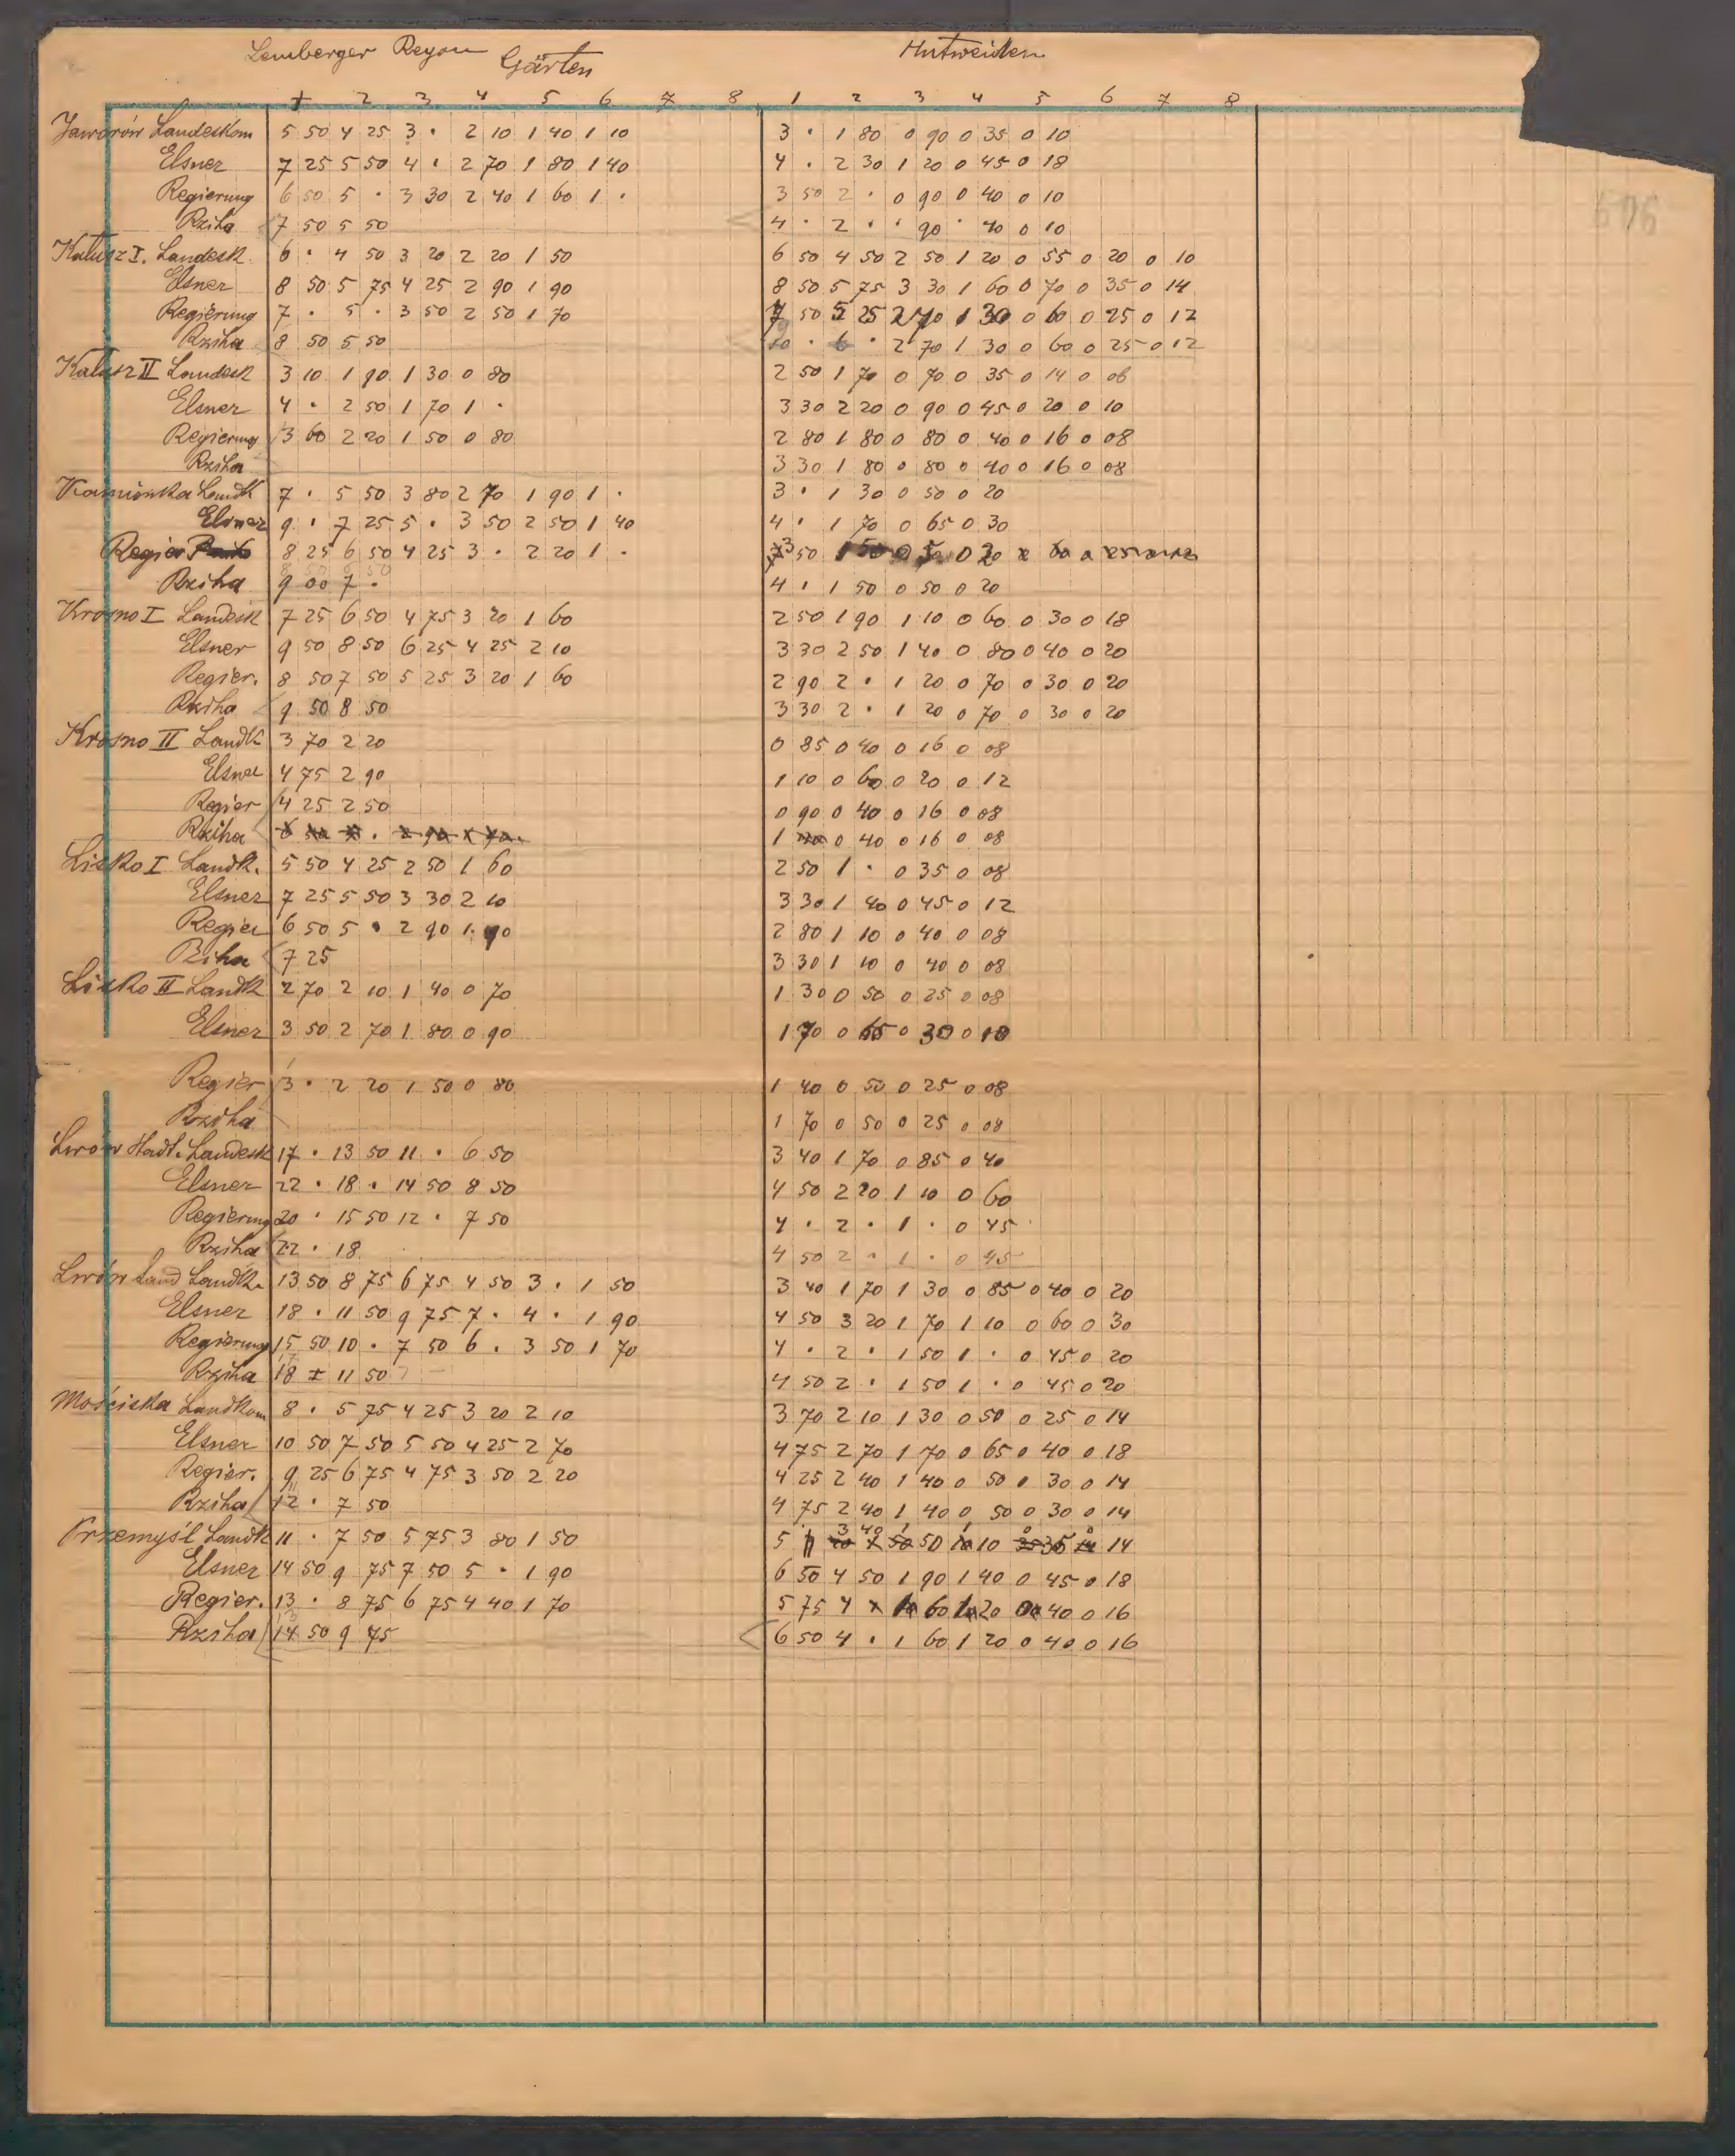 Lemberger Rayon Gärten Hutweiden
1 2 3 4 5 6 7 8 1 2 3 4 5 6 7 8
Jaworów Landeskom 5 50 4 25 3 · 2 10 1 40 1 10 3 · 1 80 0 90 0 35 0 10
Elsner 7 25 5 50 4 · 2 70 1 80 1 40 4 · 2 30 1 20 0 45 0 18
Regierung 6 50 5 · 3 30 2 40 1 60 1 · 3 50 2 · 0 90 0 40 0 10
Rziha 7 50 5 50 4 · 2 · · 90 · 40 0 10
Kałusz I. Landesk. 6 · 4 50 3 20 2 20 1 50 6 50 4 50 2 50 1 20 0 55 0 20 0 10
Elsner 8 50 5 75 4 25 2 90 1 90 8 50 5 75 3 30 1 60 0 70 0 35 0 14
Regierung 7 · 5 · 3 50 2 50 1 70 7 50 5 25 2 70 1 30 0 60 0 25 0 12
Rziha 8 50 5 50 10 · 6 · 2 70 1 30 0 60 0 25 0 12
Kałusz II Landesk 3 10 1 90 1 30 0 80 2 50 1 70 0 70 0 35 0 14 0 06
Elsner 4 · 2 50 1 70 1 · 3 30 2 20 0 90 0 45 0 20 0 10
Regierung 3 60 2 20 1 50 0 80 2 80 1 80 0 80 0 40 0 16 0 08
Rziha 3 30 1 80 0 80 0 40 0 16 0 08
Kamionka Landk 7 · 5 50 3 80 2 70 1 90 1 · 3 · 1 30 0 50 0 20
Elsner 9 · 7 25 5 · 3 50 2 50 1 40 4 · 1 70 0 65 0 30
Regier 8 25 6 50 4 25 3 · 2 20 1 · 3 50 1 50 0 50 0 20
Rziha 9 00 7 · 4 · 1 50 0 50 0 20
Krosno I Landesk 7 25 6 50 4 75 3 20 1 60 2 50 1 90 1 10 0 60 0 30 0 18
Elsner 9 50 8 50 6 25 4 25 2 10 3 30 2 50 1 40 0 80 0 40 0 20
Regier. 8 50 7 50 5 25 3 20 1 60 2 90 2 · 1 20 0 70 0 30 0 20
Rziha 9 50 8 50 3 30 2 · 1 20 0 70 0 30 0 20
Krosno II Landk 3 70 2 20 0 85 0 40 0 16 0 08
Elsner 4 75 2 90 1 10 0 60 0 20 0 12
Regier 4 25 2 50 0 90 0 40 0 16 0 08
Rziha 1 0 40 0 16 0 08
Lisko I Landk. 5 50 4 25 2 50 1 60 2 50 1 · 0 35 0 08
Elsner 7 25 5 50 3 30 2 10 3 30 1 40 0 45 0 12
Regier 6 50 5 · 2 90 1 90 2 80 1 10 0 40 0 08
Rziha 7 25 3 30 1 10 0 40 0 08
Lisko II Landk 2 70 2 10 1 40 0 70 1 30 0 50 0 25 0 08
Elsner 3 50 2 70 1 80 0 90 1 70 0 65 0 30 0 18
Regier 3 · 2 20 1 50 0 80 1 40 0 50 0 25 0 08
Rziha 1 70 0 50 0 25 0 08
Lwów Stadt. Landesk 17 · 13 50 11 · 6 50 3 40 1 70 0 85 0 40
Elsner 22 · 18 · 14 50 8 50 4 50 2 20 1 10 0 60
Regierung 20 · 15 50 12 · 7 50 4 · 2 · 1 · 0 45
Rziha 22 · 18 4 50 2 · 1 · 0 45
Lwów Land Landk. 13 50 8 75 6 75 4 50 3 · 1 50 3 40 1 70 1 30 0 85 0 40 0 20
Elsner 18 · 11 50 9 75 7 · 4 · 1 90 4 50 3 20 1 70 1 10 0 60 0 30
Regierung 15 50 10 · 7 50 6 · 3 50 1 70 4 · 2 · 1 50 1 · 0 45 0 20
Rziha 18 11 50 4 50 2 · 1 50 1 · 0 45 0 20
Mościska Landkom 8 · 5 75 4 25 3 20 2 10 3 70 2 10 1 30 0 50 0 25 0 14
Elsner 10 50 7 50 5 50 4 25 2 70 4 75 2 70 1 70 0 65 0 40 0 18
Regier. 9 25 6 75 4 75 3 50 2 20 4 25 2 40 1 40 0 50 0 30 0 14
Rziha 12 · 7 50 4 75 2 40 1 40 0 50 0 30 0 14
Przemyśl Landk 11 · 7 50 5 75 3 80 1 50 5 3 40 1 50 1 10 0 35 0 14
Elsner 14 50 9 75 7 50 5 · 1 90 6 50 4 50 1 90 1 40 0 45 0 18
Regier. 13 · 8 75 6 75 4 40 1 70 5 75 4 1 60 1 20 0 40 0 16
Rziha 14 50 9 75 6 50 4 · 1 60 1 20 0 40 0 16